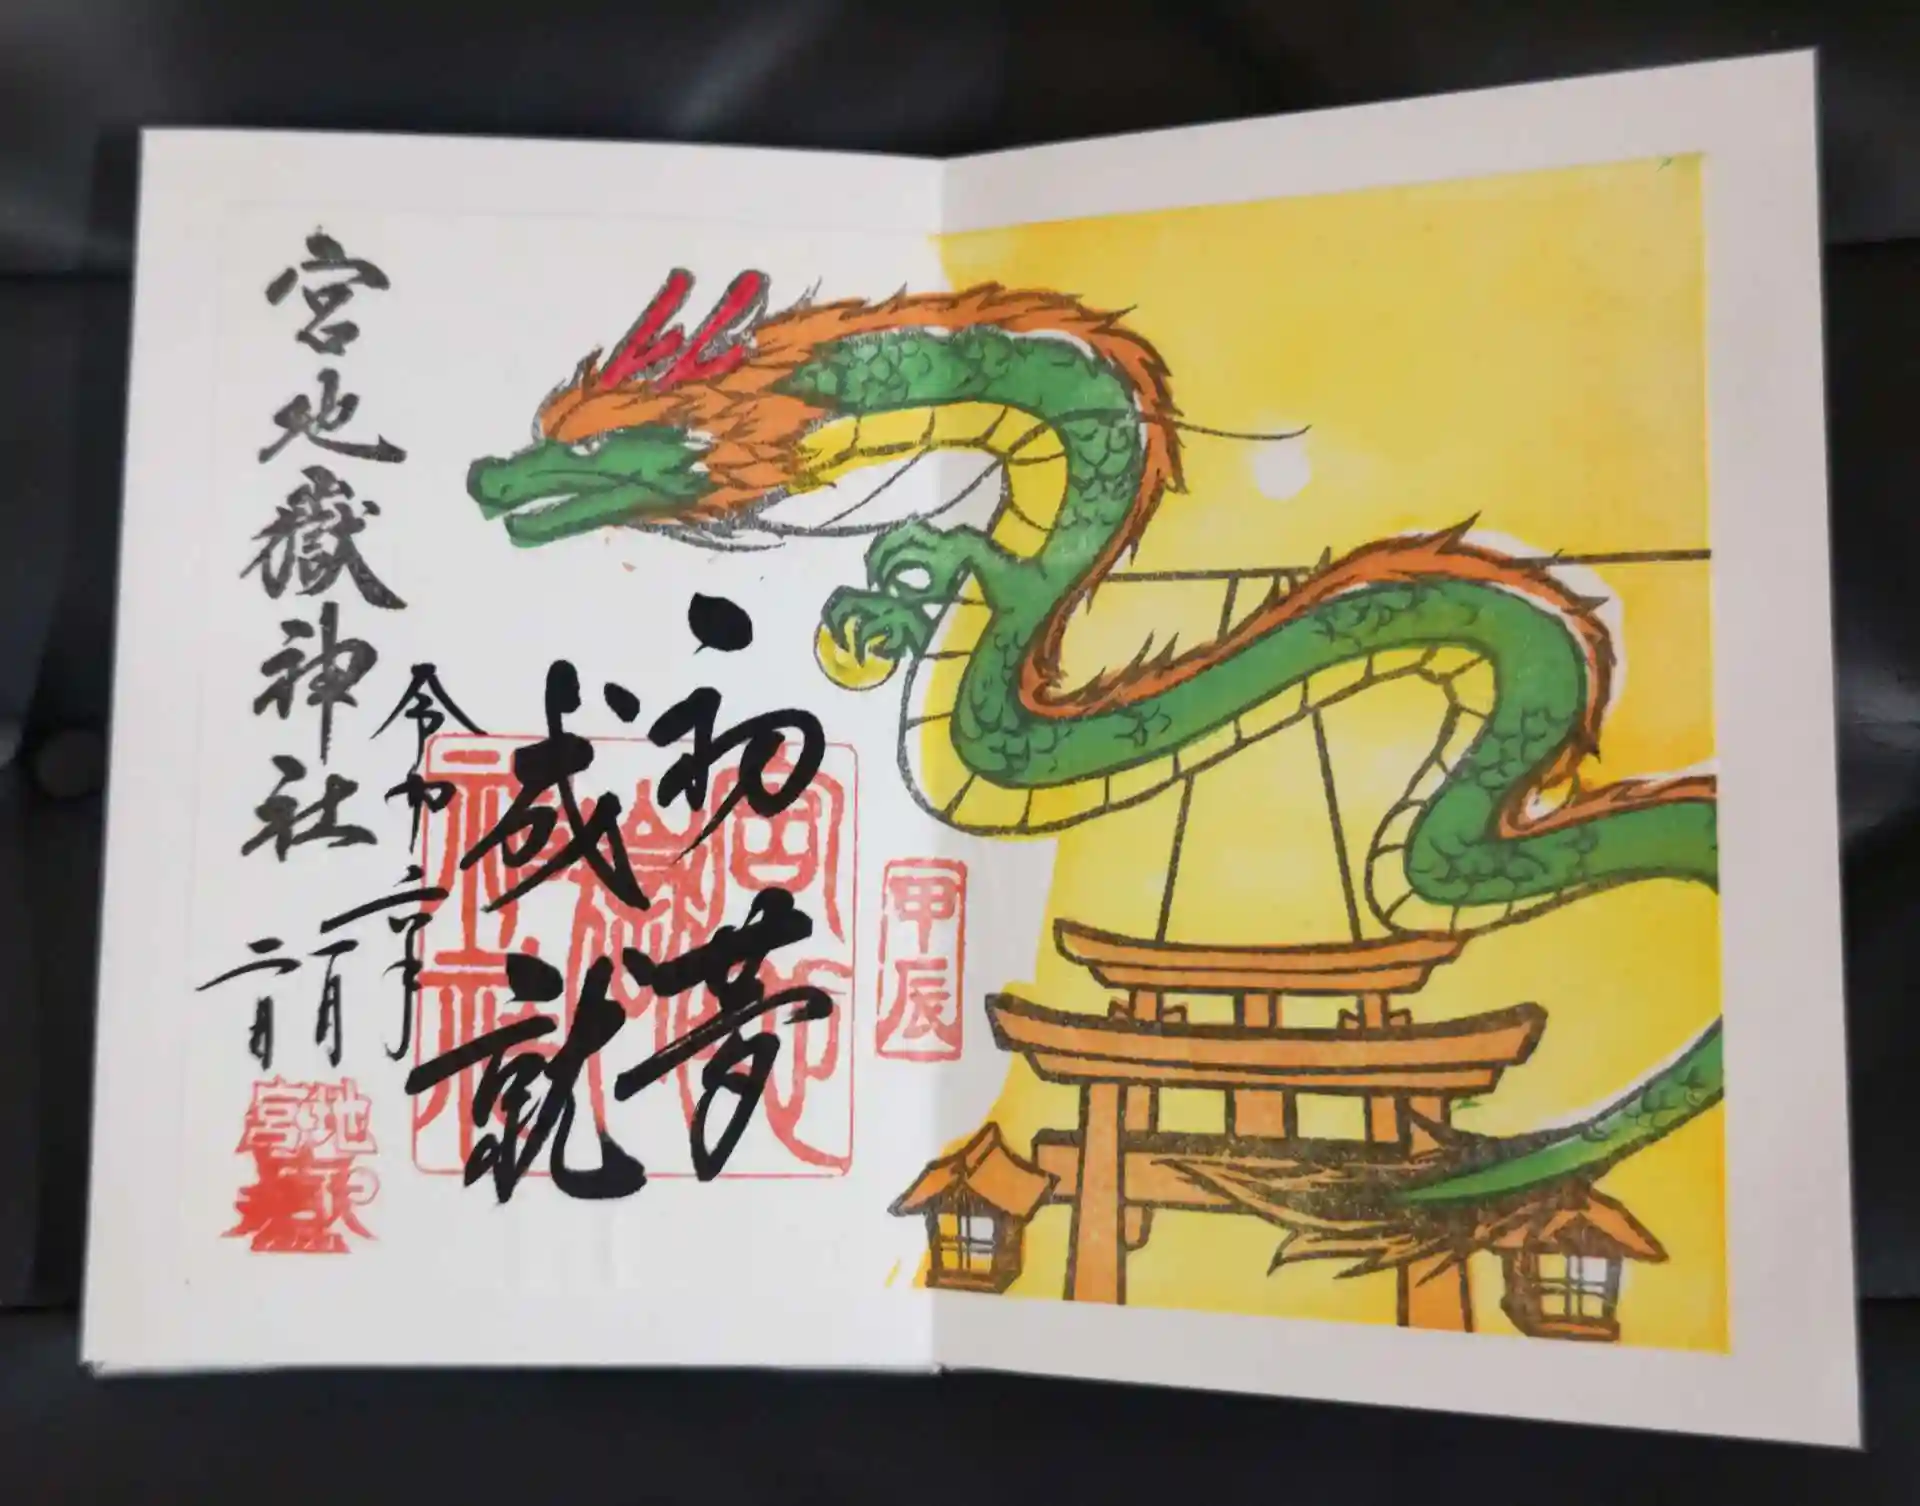 甲辰
初夢
成就
宮地嶽神社
令和六年
一月二日
宮地嶽神社
宮地嶽